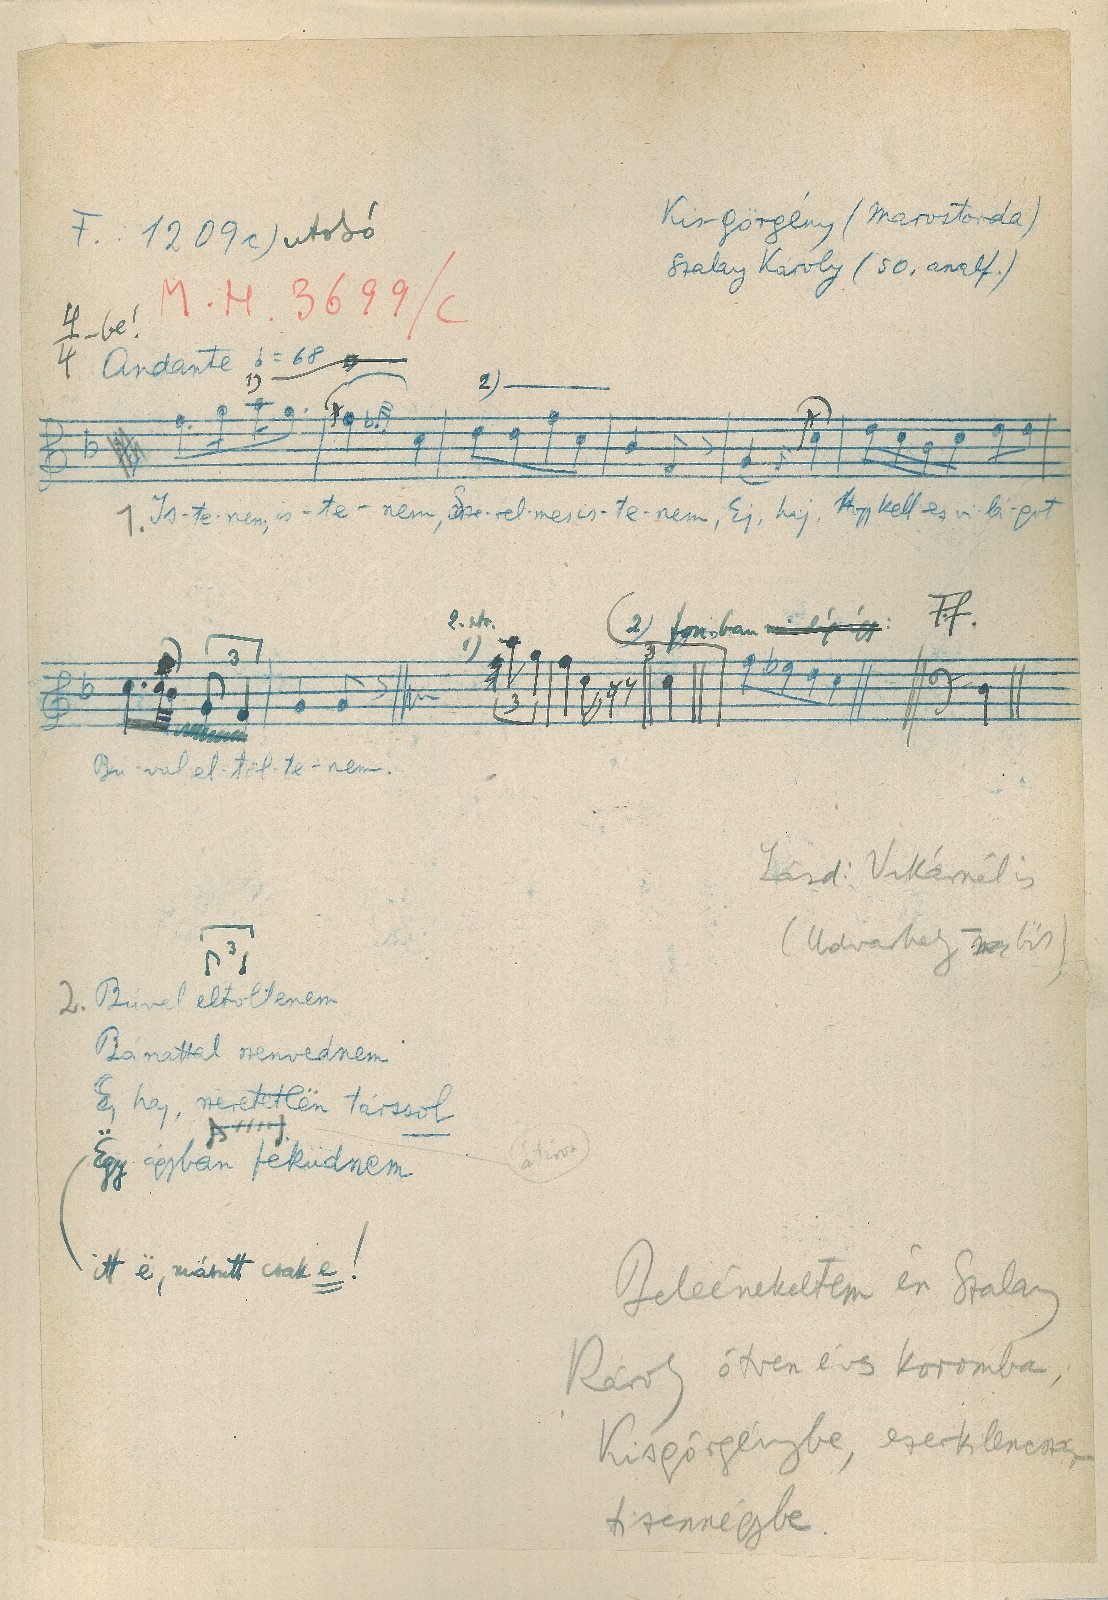 F.: 1209c) utolsó
Kis-görgény (Marostorda)
Szalay Károly (50. analf.)
M.H. 3699/c
4/4-be!
Andante = 68
1)
2)
1. Is-te-nem, is-te-nem, Sze-rel-mes is-te-nem, Ej, haj, Hogy kell ez vi-lá-got
2. str.
1)
2) fonóban
F.f.
3
3
3
Bú-val el-töl-te-nem.
Lásd: Vikárnál is
(Udvarhely
3
2. Búval eltöltenem
Bánattal szenvednem
Ej haj, szeretetlën társsol
Ëgy ágyban feküdnem
itt ë, másutt csak e!
Beleénekeltem én Szalay
Károly ötven éves koromba,
Kisgörgénybe, ezerkilencszáz-
tizennégybe.